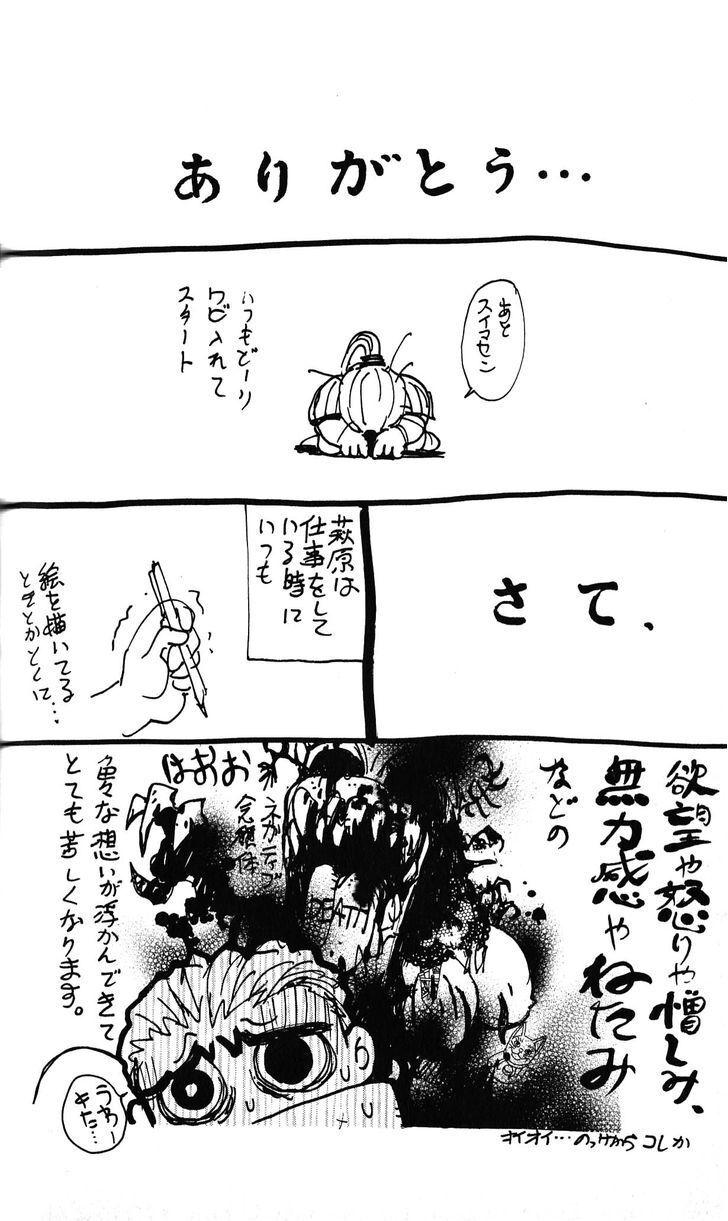 ありがとう…
あと
スイマセン
いつもどーり
ワビ入れて
スタート
さて、
萩原は
仕事をして
いる時に
いつも
絵を描いてる
ときとかとくに…
欲望や怒りや憎しみ、
無力感やねたみ
などの
はおお
ネガティブ
念願体
DEATH
色々な想いが浮かんできて
とても苦しくなります。
うわー
きた…
オイオイ…のっけからコレか